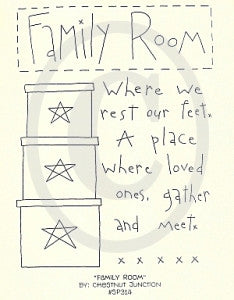 Family Room
Where we
rest our feet.
A place
where loved
ones, gather
and meet.
x x x x x
"FAMILY ROOM"
BY: CHESTNUT JUNCTION
#SP314